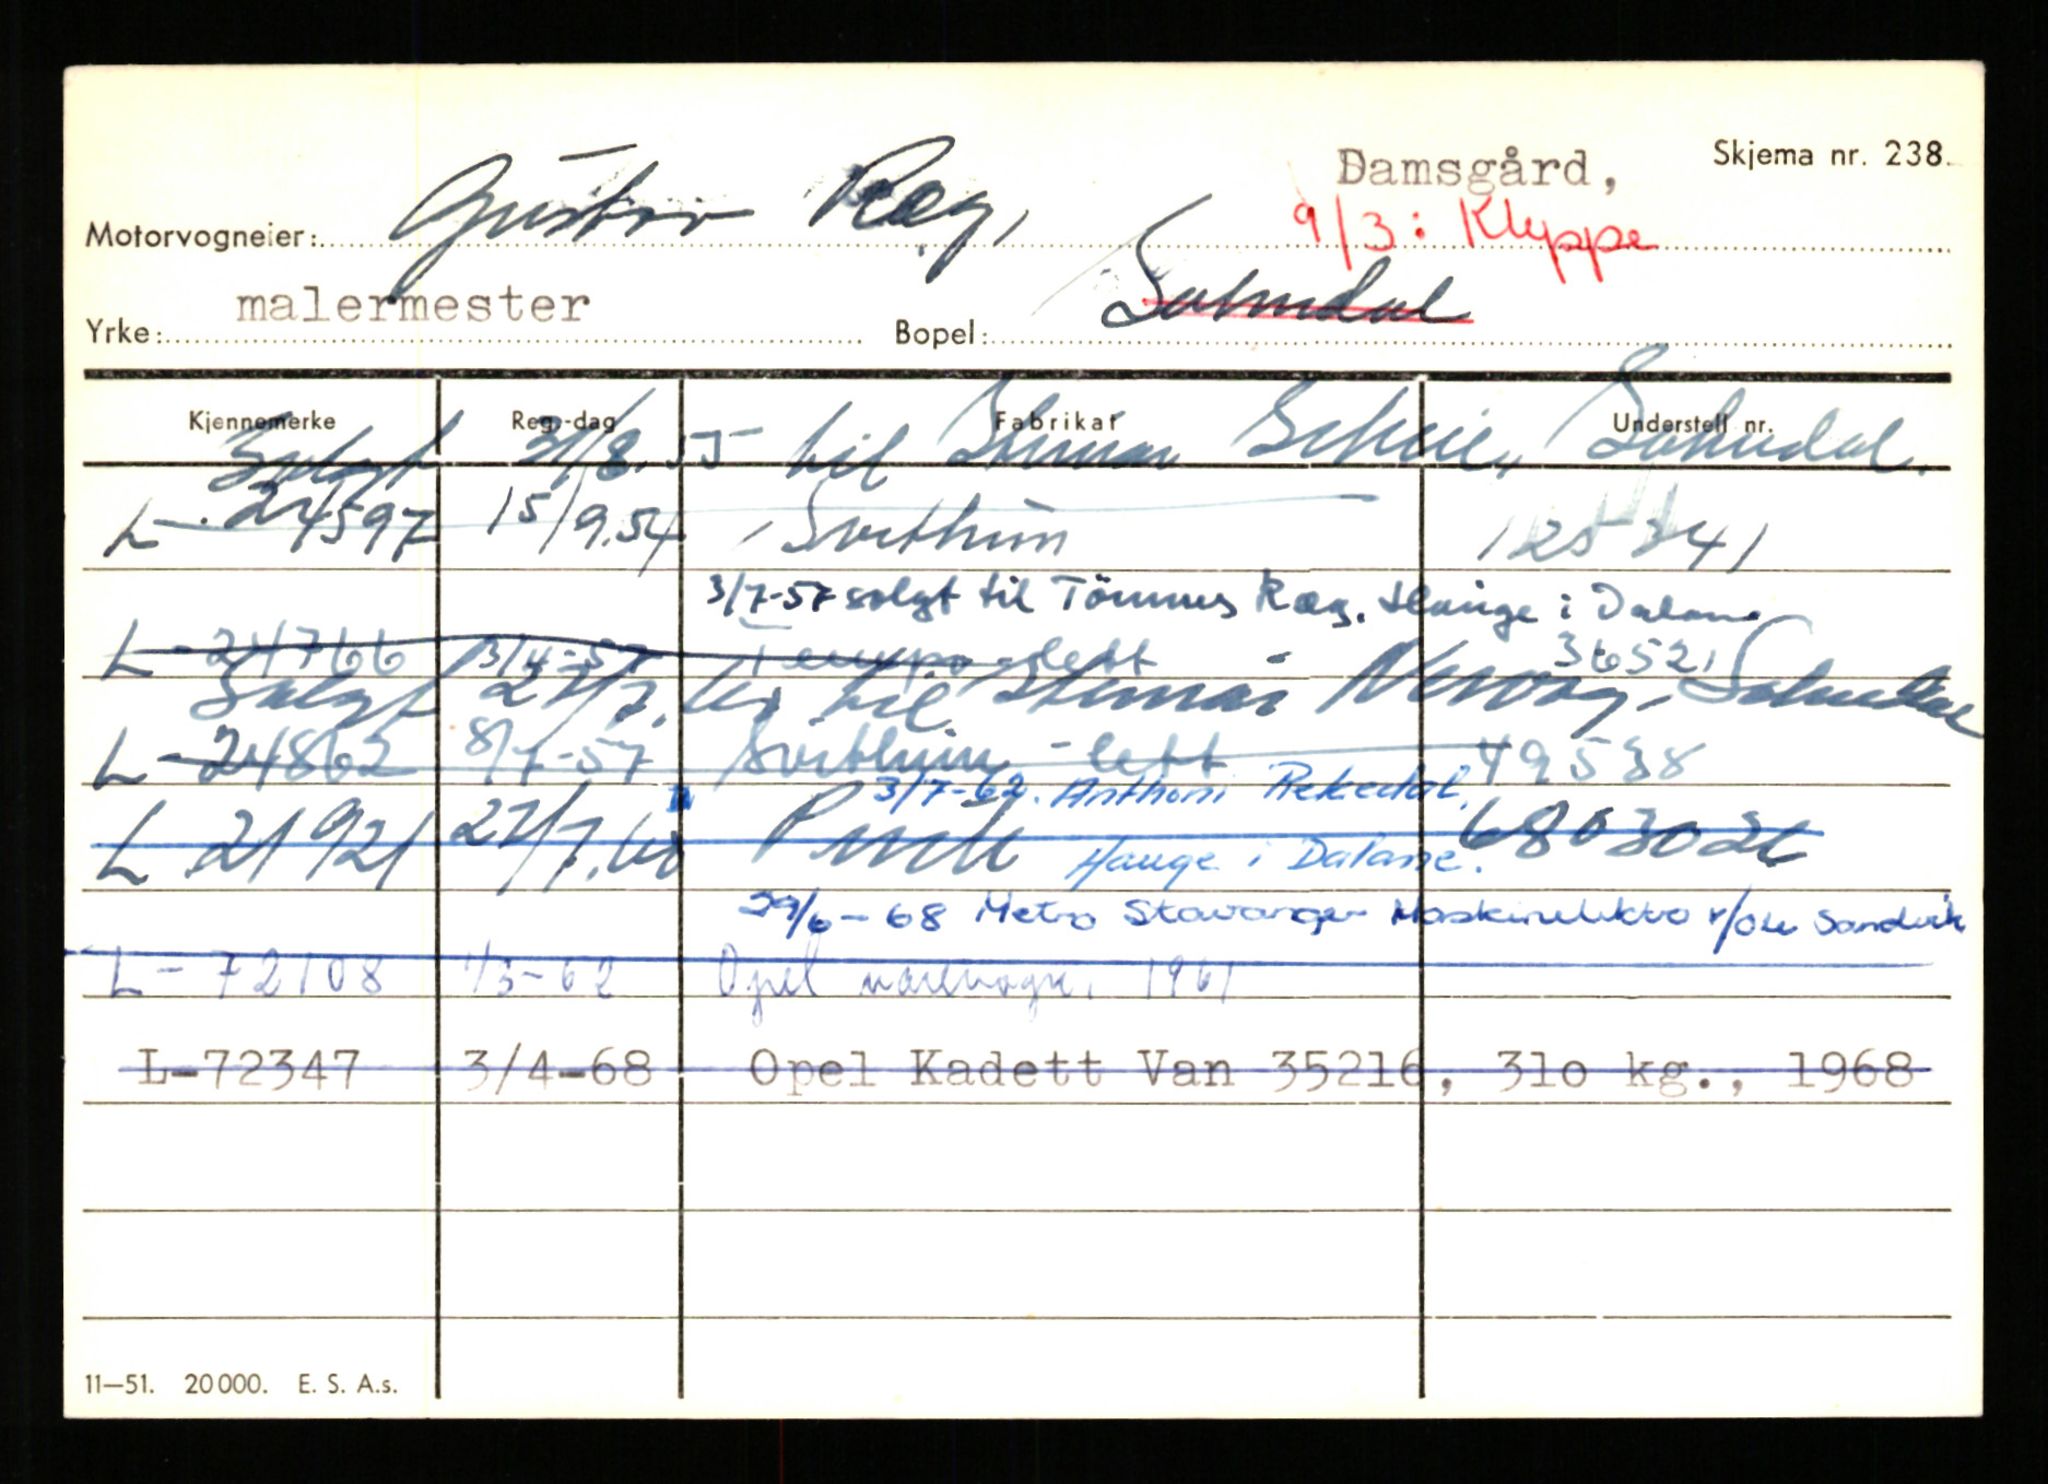 Damsgård, Skjema nr. 238.
Motorvogneier: Gustav Ræg, 9/3: Kleppe
malermester Sokndal
Yrke: Bopel:
Kjennemerke Reg.-dag Fabrikat Understell nr.
Solgt 31/8.55 til Sokndal.
L-24597 15/9.54 Svithun 125341
3/7-57 solgt til Tönnes Ræg. Hauge i Dalane
L-24766 3/4-57 Tempo-lett 36521
Solgt 27/7.60 til Sokndal
L-24862 8/7-57 Svithun-lett 49538
3/7-62. Anthoni Rekedal,
L.21921 27/7.60 Puch
Hauge i Dalane.
29/6-68 Metro Stavanger Maskinelektro v/Ole Sandvik
L-72108 1/3-62 Opel varevogn, 1961
L-72347 3/4-68 Opel Kadett Van 35216, 310 kg., 1968
11—51. 20000. E. S. A.s.